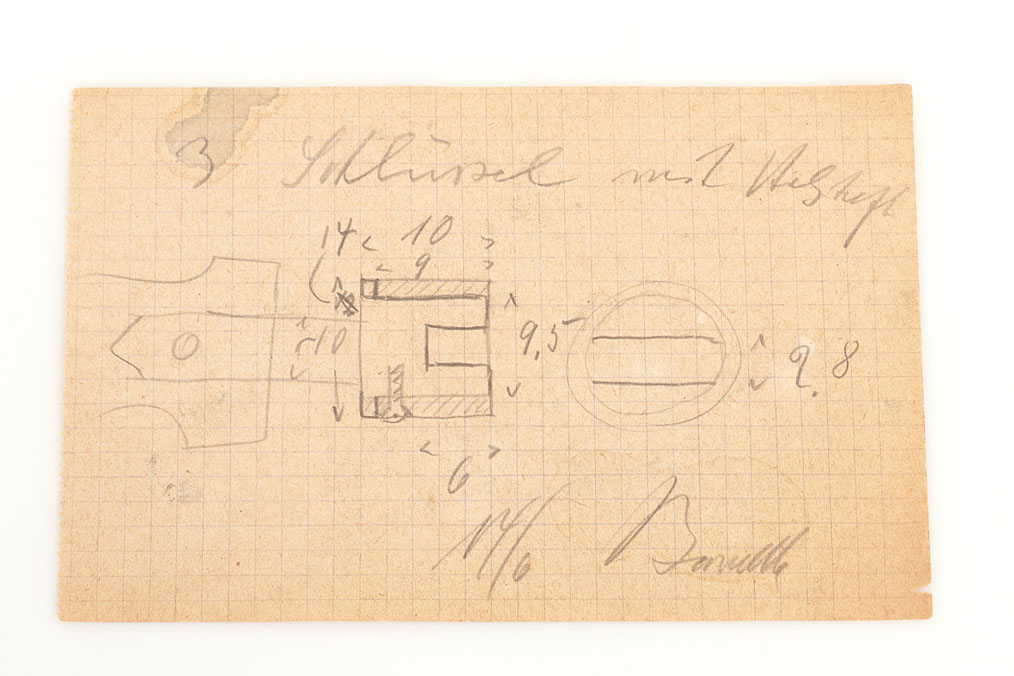 3 Schlüssel mit Holzheft
14 10
9
10 9,5 2.8
6
14/6